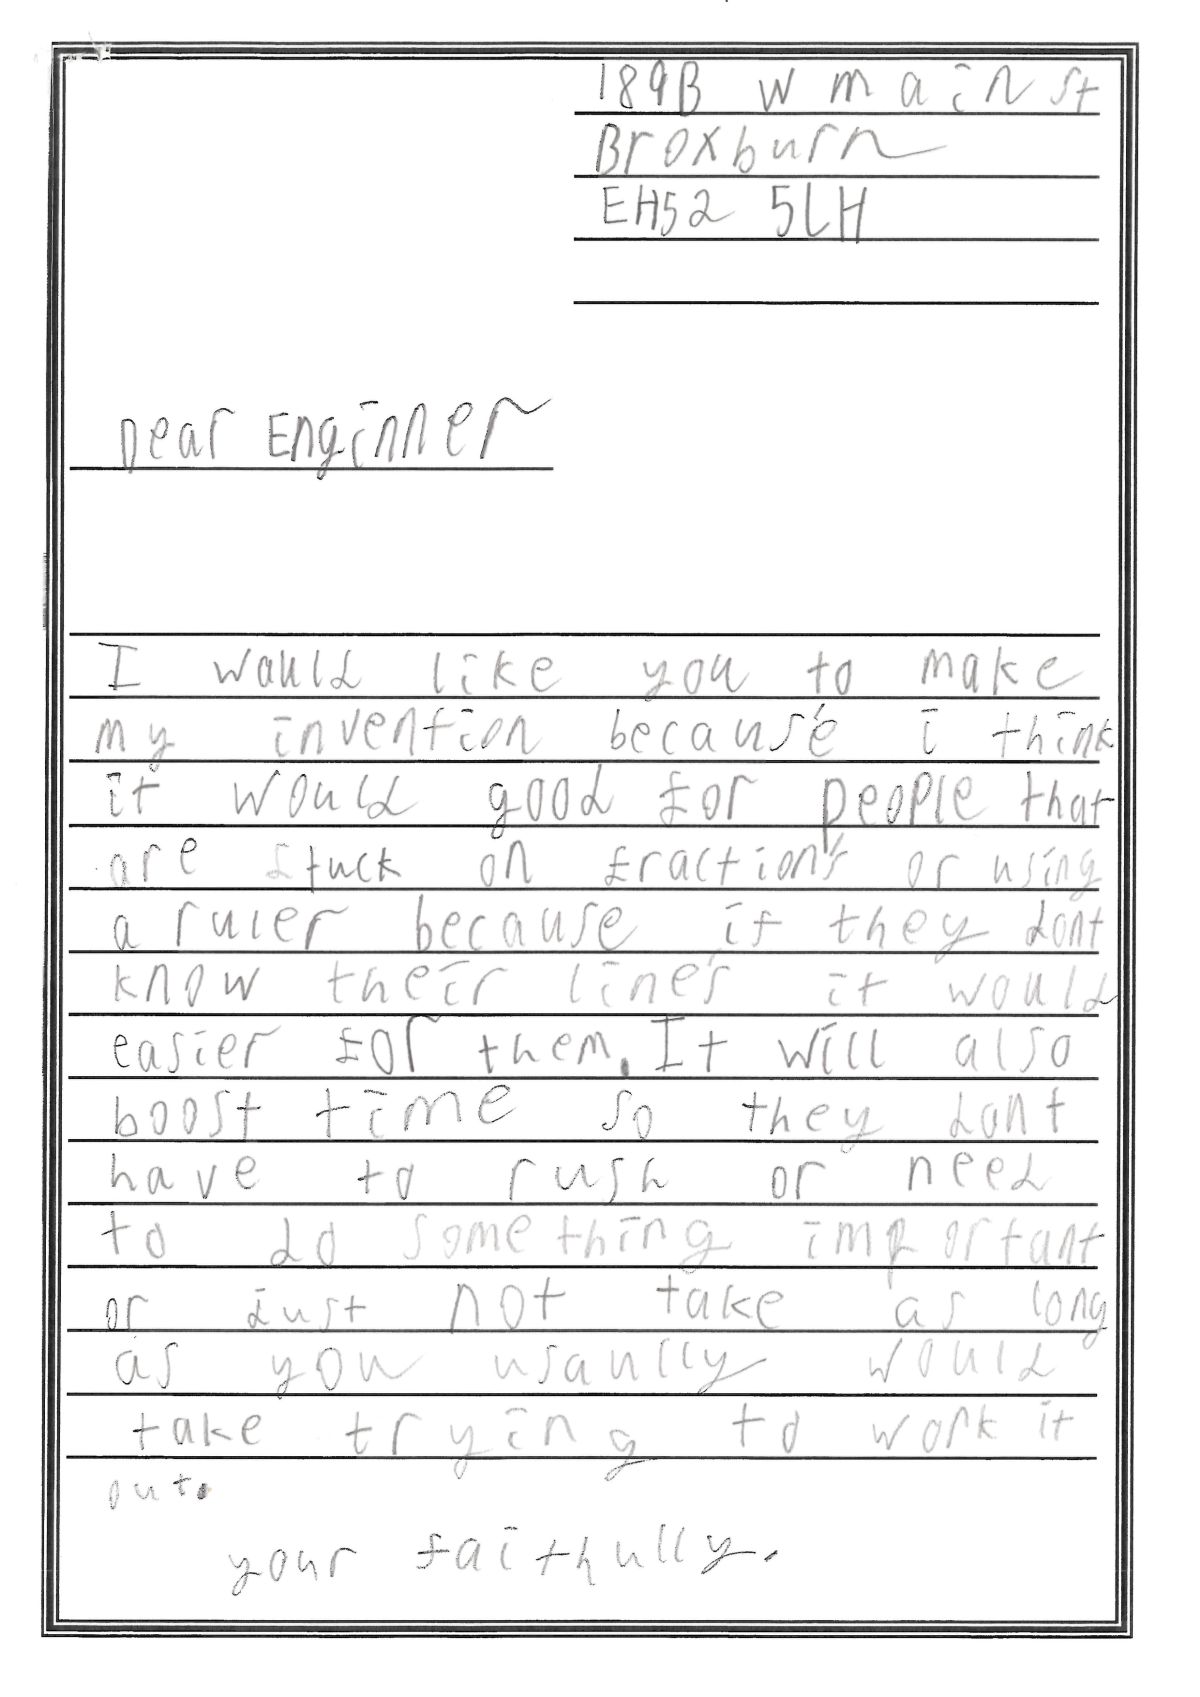 189B w main st
Broxburn
EH52 5LH
Dear Enginner
I would like you to make
my invention because i think
it would good for people that
are stuck on fractions or using
a ruler because if they dont
know their lines it would
easier for them. It will also
boost time so they dont
have to rush or need
to do something important
or just not take as long
as you usaully would
take trying to work it
out.
your faithfully.